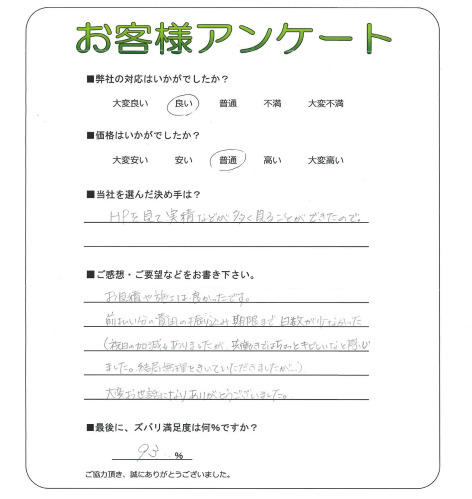 お客様アンケート
■弊社の対応はいかがでしたか？
大変良い 良い 普通 不満 大変不満
■価格はいかがでしたか？
大変安い 安い 普通 高い 大変高い
■当社を選んだ決め手は？
HPを見て実績などが多く見ることができたので。
■ご感想・ご要望などをお書き下さい。
お見積や施工は良かったです。
前払い分の費用の振り込み期限まで日数が少なかった
(祝日の加減もありましたが、共働きではちょっとキビしいなと思い
ました。結局無理をきいていただきましたが…)
大変お世話になりありがとうございました。
■最後に、ズバリ満足度は何%ですか？
93 %
ご協力頂き、誠にありがとうございました。